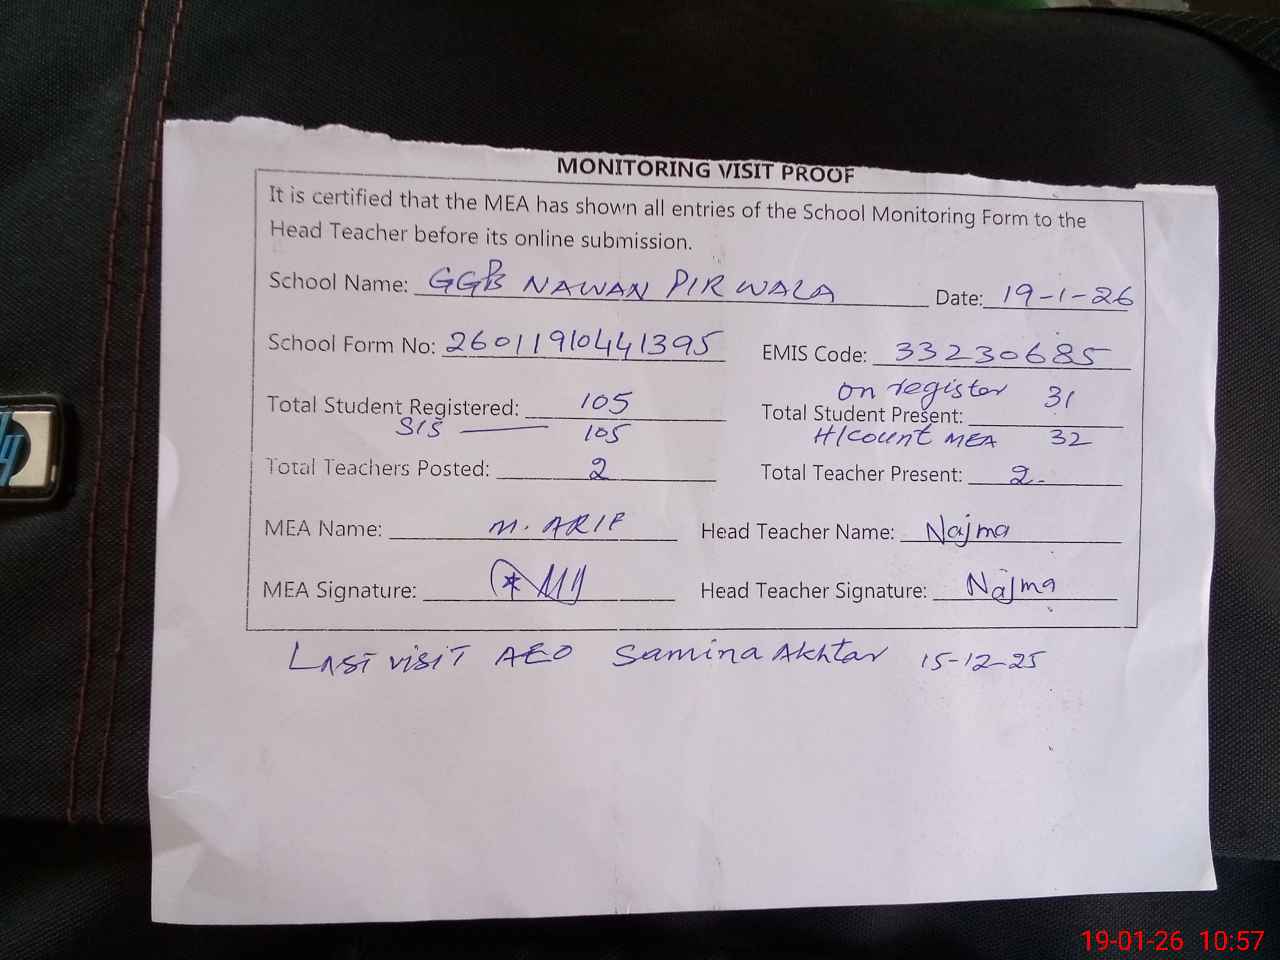 MONITORING VISIT PROOF
It is certified that the MEA has shown all entries of the School Monitoring Form to the
Head Teacher before its online submission.
School Name: GGPS NAWAN PIR WALA Date: 19-1-26
School Form No: 26011910441395 EMIS Code: 33230685
on register 31
Total Student Registered: 105 Total Student Present:
SIS 105 H/Count MEA 32
Total Teachers Posted: 2 Total Teacher Present: 2
MEA Name: M. ARIF Head Teacher Name: Najma
MEA Signature: Head Teacher Signature: Najma
LAST VISIT AEO Samina Akhtar 15-12-25
19-01-26 10:57